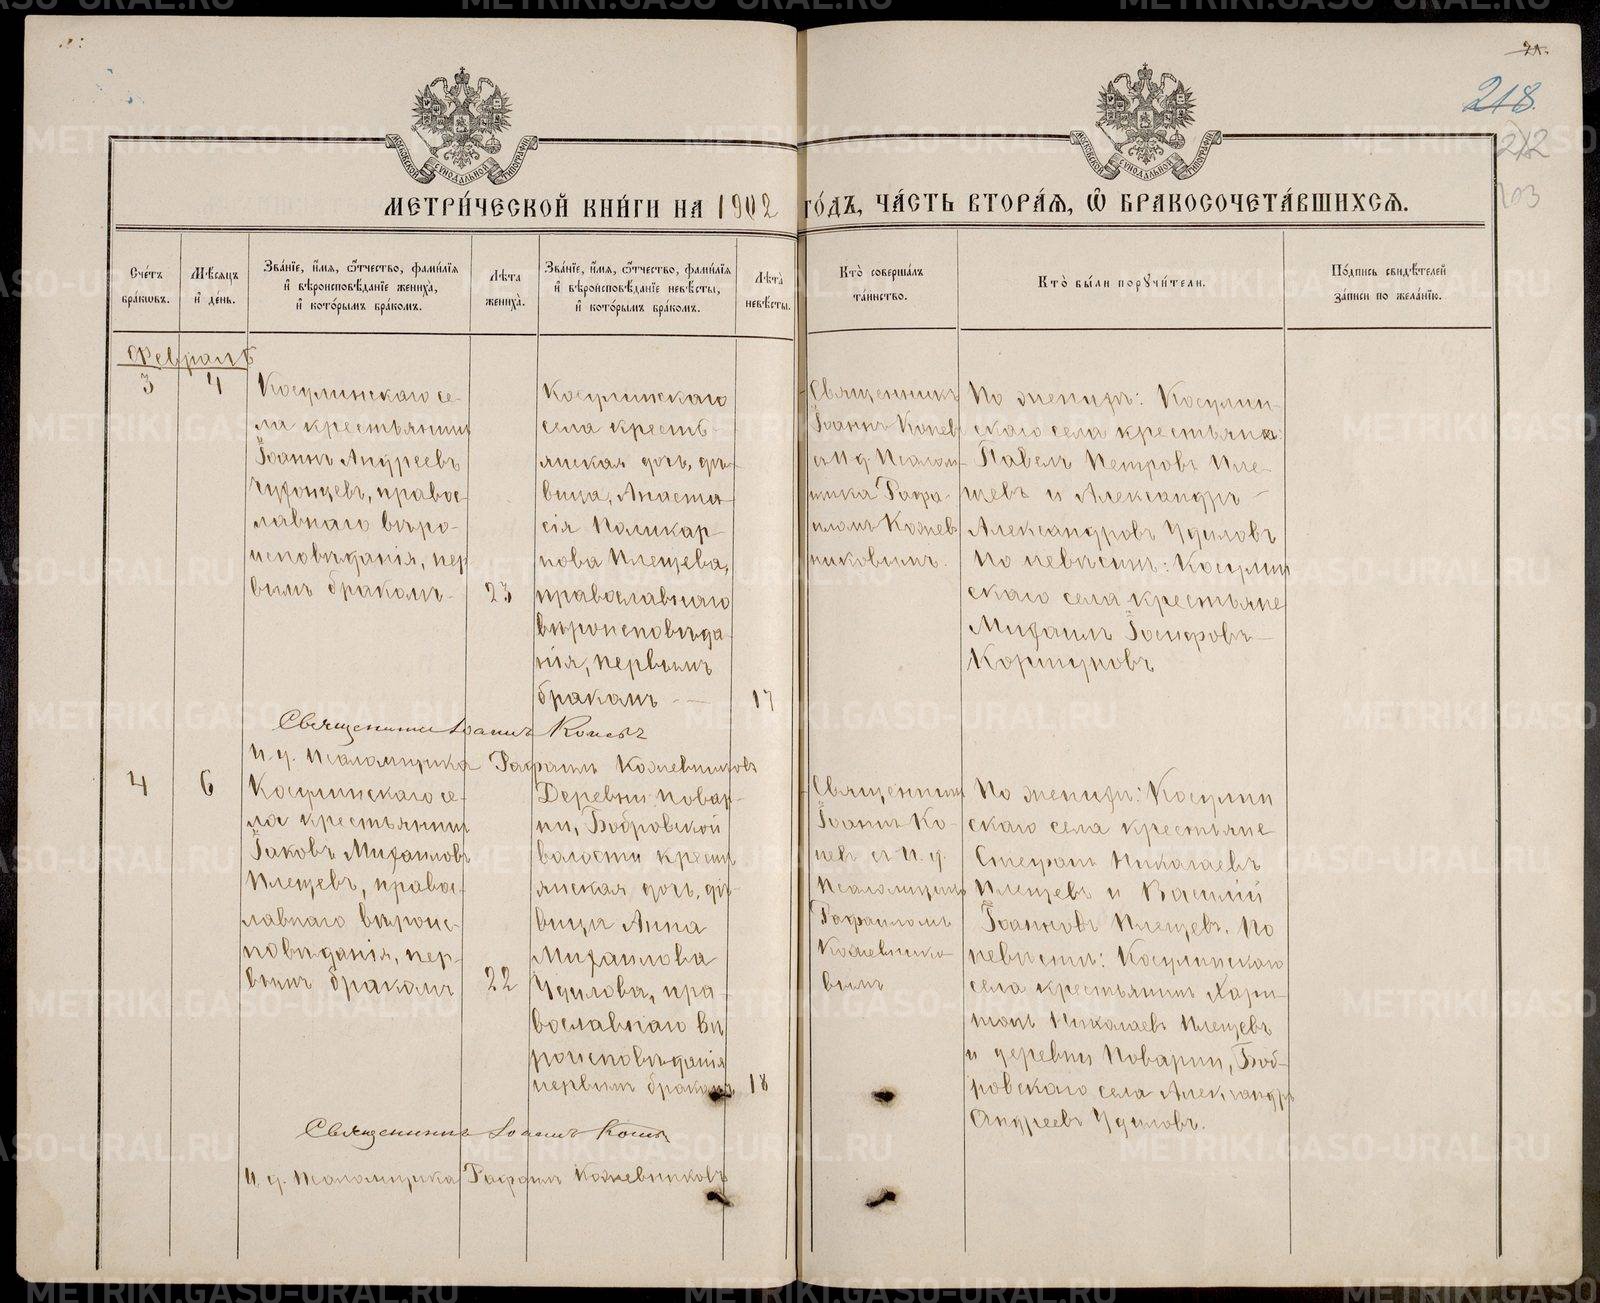 218.
212
103
МОСКОВСКОЙ СѴНОДАЛЬНОЙ ТИПОГРАФІИ
МОСКОВСКОЙ СѴНОДАЛЬНОЙ ТИПОГРАФІИ
МЕТРИ́ЧЕСКОЙ КНИ́ГИ НА 1902 ГО́ДЪ, ЧА́СТЬ ВТОРА́Я, Ѽ БРАКОСОЧЕТА́ВШИХСѦ.
Сче́тъ
бра́кѡвъ.
Мѣ́сяцъ
и҆ де́нь.
Зва́нїе, и҆́мя, ѻ҆́тчество, фами́лїя
и҆ вѣроисповѣ́данїе жениха̀,
и҆ кото́рымъ бра́комъ.
Лѣ́та
жениха̀.
Зва́нїе, и҆́мя, ѻ҆́тчество, фами́лїя
и҆ вѣроисповѣ́данїе невѣ́сты,
и҆ кото́рымъ бра́комъ.
Лѣ́та
невѣ́сты.
Кто̀ соверша́лъ
та́инство.
Кто̀ бы́ли порꙋчи́тели.
По́дпись свидѣ́телей
за́писи по жела́нїю.
Февраль
3
4
Косулинскаго се-
ла крестьянинъ
Іоаннъ Андреевъ
Чудонцевъ, правос-
лавнаго вѣро-
исповѣданія, пер
вымъ бракомъ
23
Косулинскаго
села кресть-
янская дочь, дѣ-
вица, Анаста-
сія Поликар-
пова Плещева,
православнаго
вѣроисповѣда-
нія, первымъ
бракомъ
17
Священникъ
Іоаннъ Копев
съ И. д. Псалом-
щика Рафа-
иломъ Кожев
никовымъ.
По женихѣ: Косулин-
скаго села крестьяне:
Павелъ Петровъ Пле-
щевъ и Александръ
Александровъ Удиловъ
По невѣстѣ: Косулин
скаго села крестьяне
Михаилъ Іосифовъ
Коршуновъ
Священникъ Іоаннъ Копевъ
И. д. Псаломщика Рафаилъ Кожевниковъ
4
6
Косулинскаго се-
ла крестьянинъ
Іаковъ Михаиловъ
Плещевъ, правос-
лавнаго вѣроис-
повѣданія, пер-
вымъ бракомъ
22
Деревни Повар-
ни, Бобровской
волости кресть
янская дочь, дѣ-
вица Анна
Михаилова
Удилова, пра-
вославнаго вѣ
роисповѣданія
первымъ бракомъ
18
Священникъ
Іоаннъ Ко-
пев съ И. д.
Псаломщика
Рафаиломъ
Кожевнико
вымъ
По женихѣ: Косулин
скаго села крестьяне
Стефанъ Николаевъ
Плещевъ и Василій
Іоанновъ Плещевъ. По
невѣстѣ: Косулинскаго
села крестьянинъ Хари-
тонъ Николаевъ Плещевъ
и деревни Поварни, Боб-
ровскаго села Александръ
Андреевъ Удиловъ.
Священникъ Іоаннъ Копевъ
И. д. Псаломщика Рафаилъ Кожевниковъ